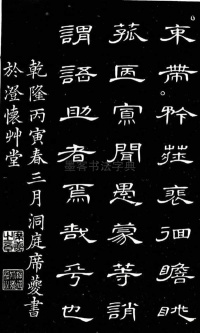 束帶矜莊徘徊瞻眺
孤陋寡聞愚蒙等誚
謂語助者焉哉乎也
乾隆丙寅春三月洞庭席夔書
於澄懷艸堂
墨客书法字典